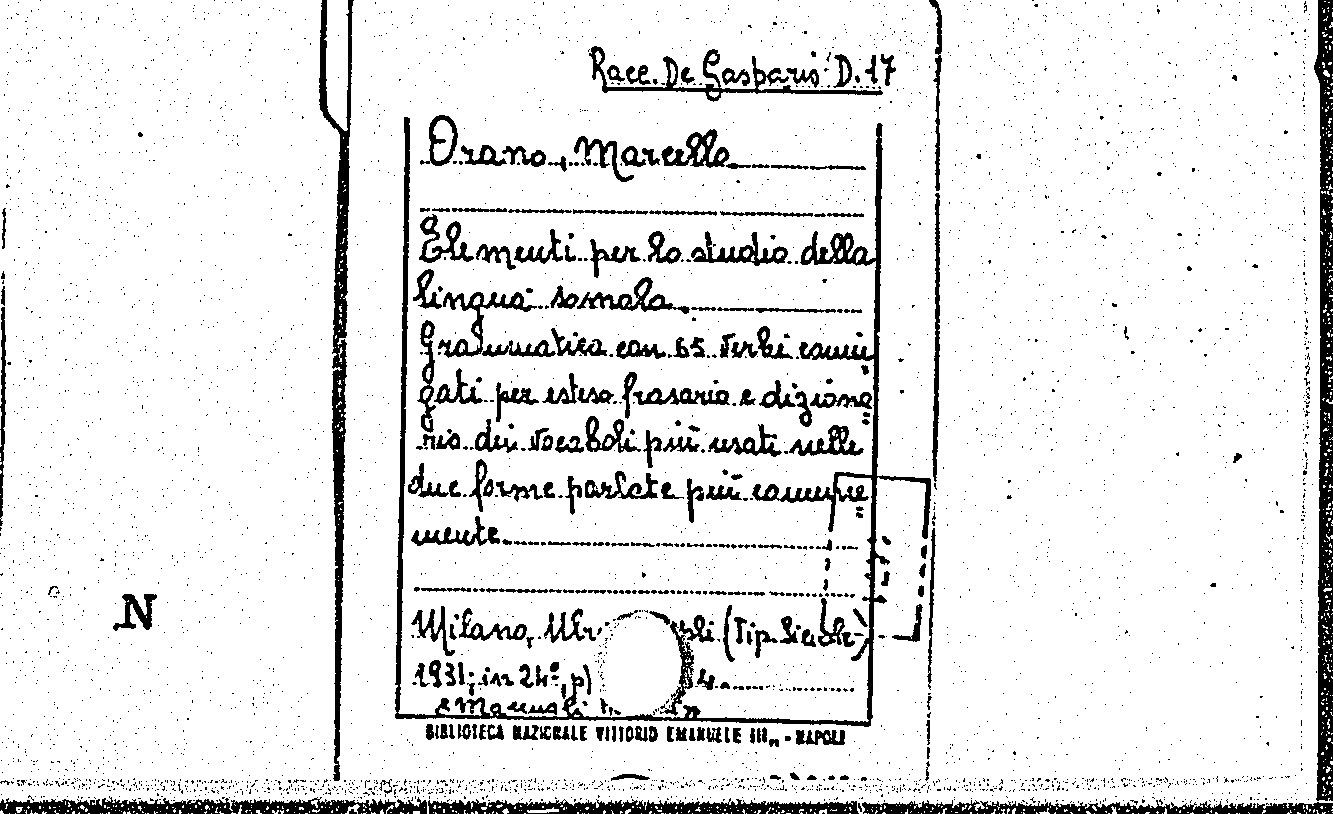 Racc. De Gasparis D.17
Orano, Marcello
Elementi per lo studio della
lingua somala.
Grammatica con 65 verbi coniu
gati per esteso frasario e diziona
rio dei vocaboli più usati nelle
due forme parlate più comune
mente.
N
Milano, (Tip.
1931; in 24º, p)
BIBLIOTECA NAZIONALE VITTORIO EMANUELE III„ - NAPOLI